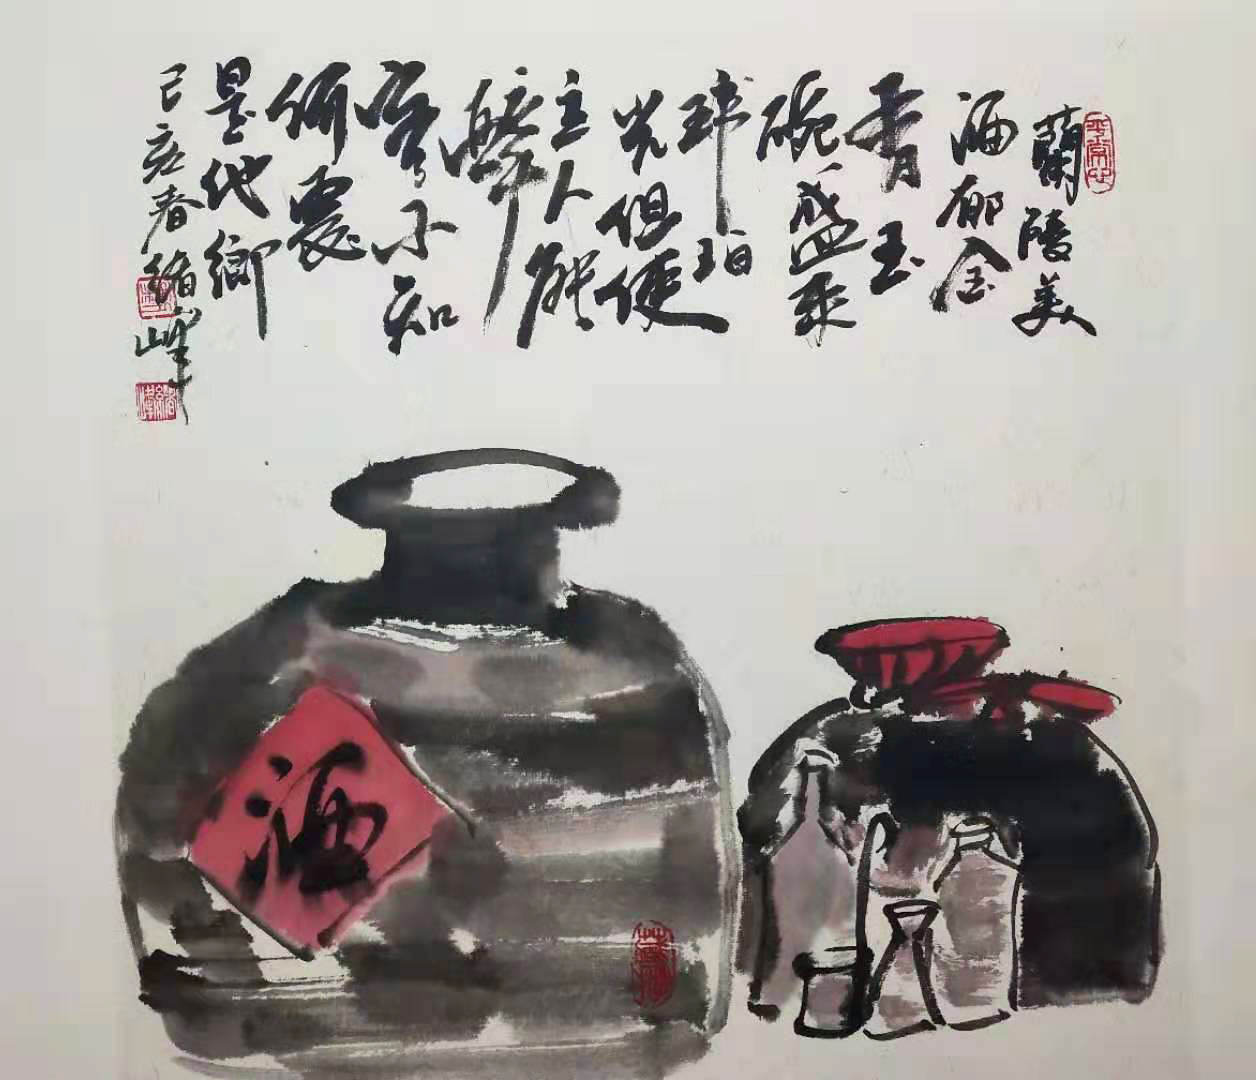 平常心
蘭陵美
酒郁金
香玉
碗盛来
琥珀
光但使
主人能
醉
客不知
何處
是他鄉
己亥春緒峰
酒